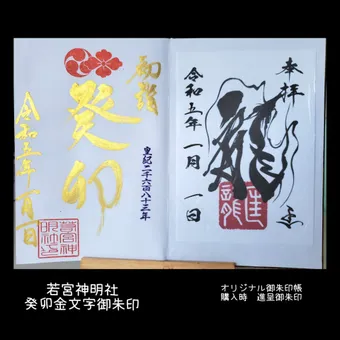 奉拝
龍
令和五年一月一日
初詣
癸卯
皇紀二千六百八十三年
令和五年一月一日
若宮神明社
癸卯金文字御朱印
オリジナル御朱印帳
購入時 進呈御朱印